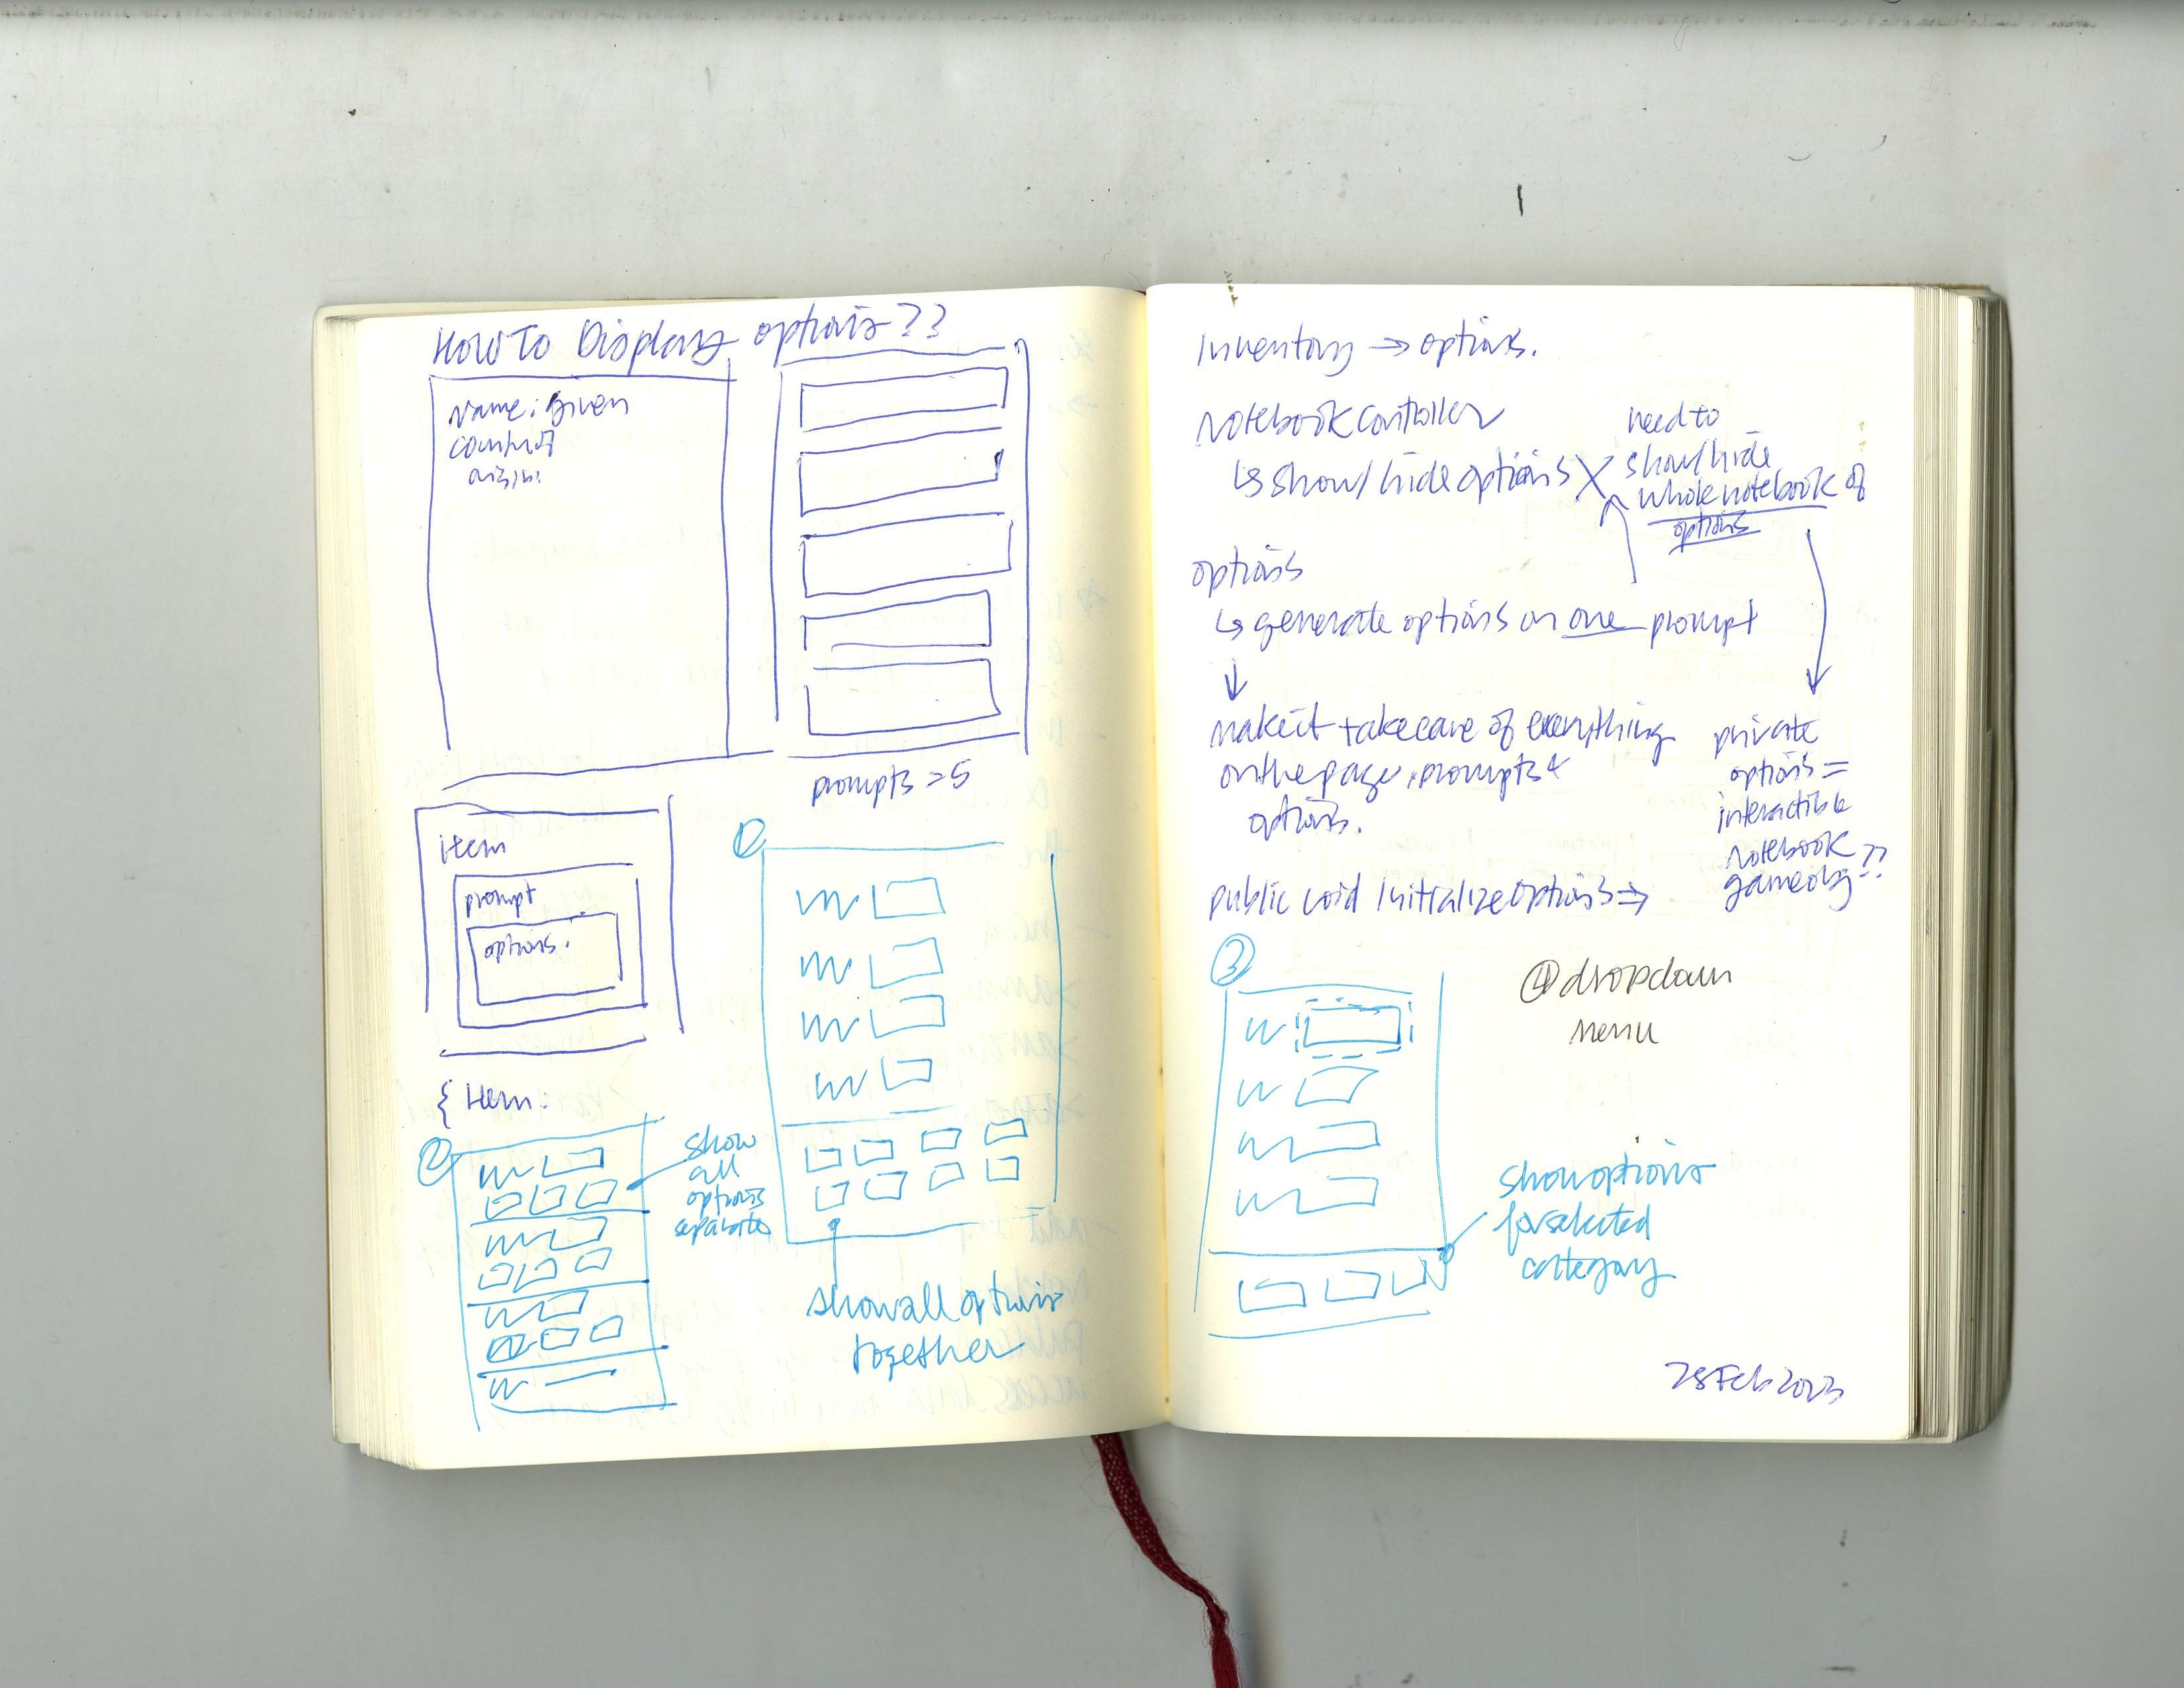 How To Display options??
Name: given
country
origin:
prompts = 5
item
prompt
options.
{ Item:
①
②
show
all
options
separate
show all options
together
Inventory → options.
notebook controller
↳ show/hide options X
need to
show/hide
whole notebook of
options
options
↳ generate options on one prompt
↓
make it take care of everything
on the page, prompts &
options.
private
options =
interactible
notebook
gameobj??
public void InitializeOptions ⇒
③
④ dropdown
menu
show options
for selected
category
28 Feb 2023